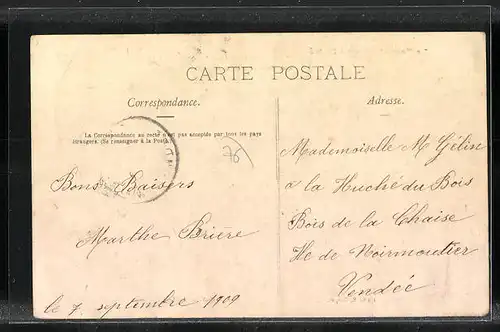 CARTE POSTALE
Correspondance.
Adresse.
La Correspondance au recto n'est pas acceptée par tous les pays
étrangers. (Se renseigner à la Poste.)
76
Bons Baisers
Marthe Brière
le 7 septembre 1909
Mademoiselle M Gélin
a la Huché du Bois
Bois de la Chaise
Ile de Noirmoutier
Vendée